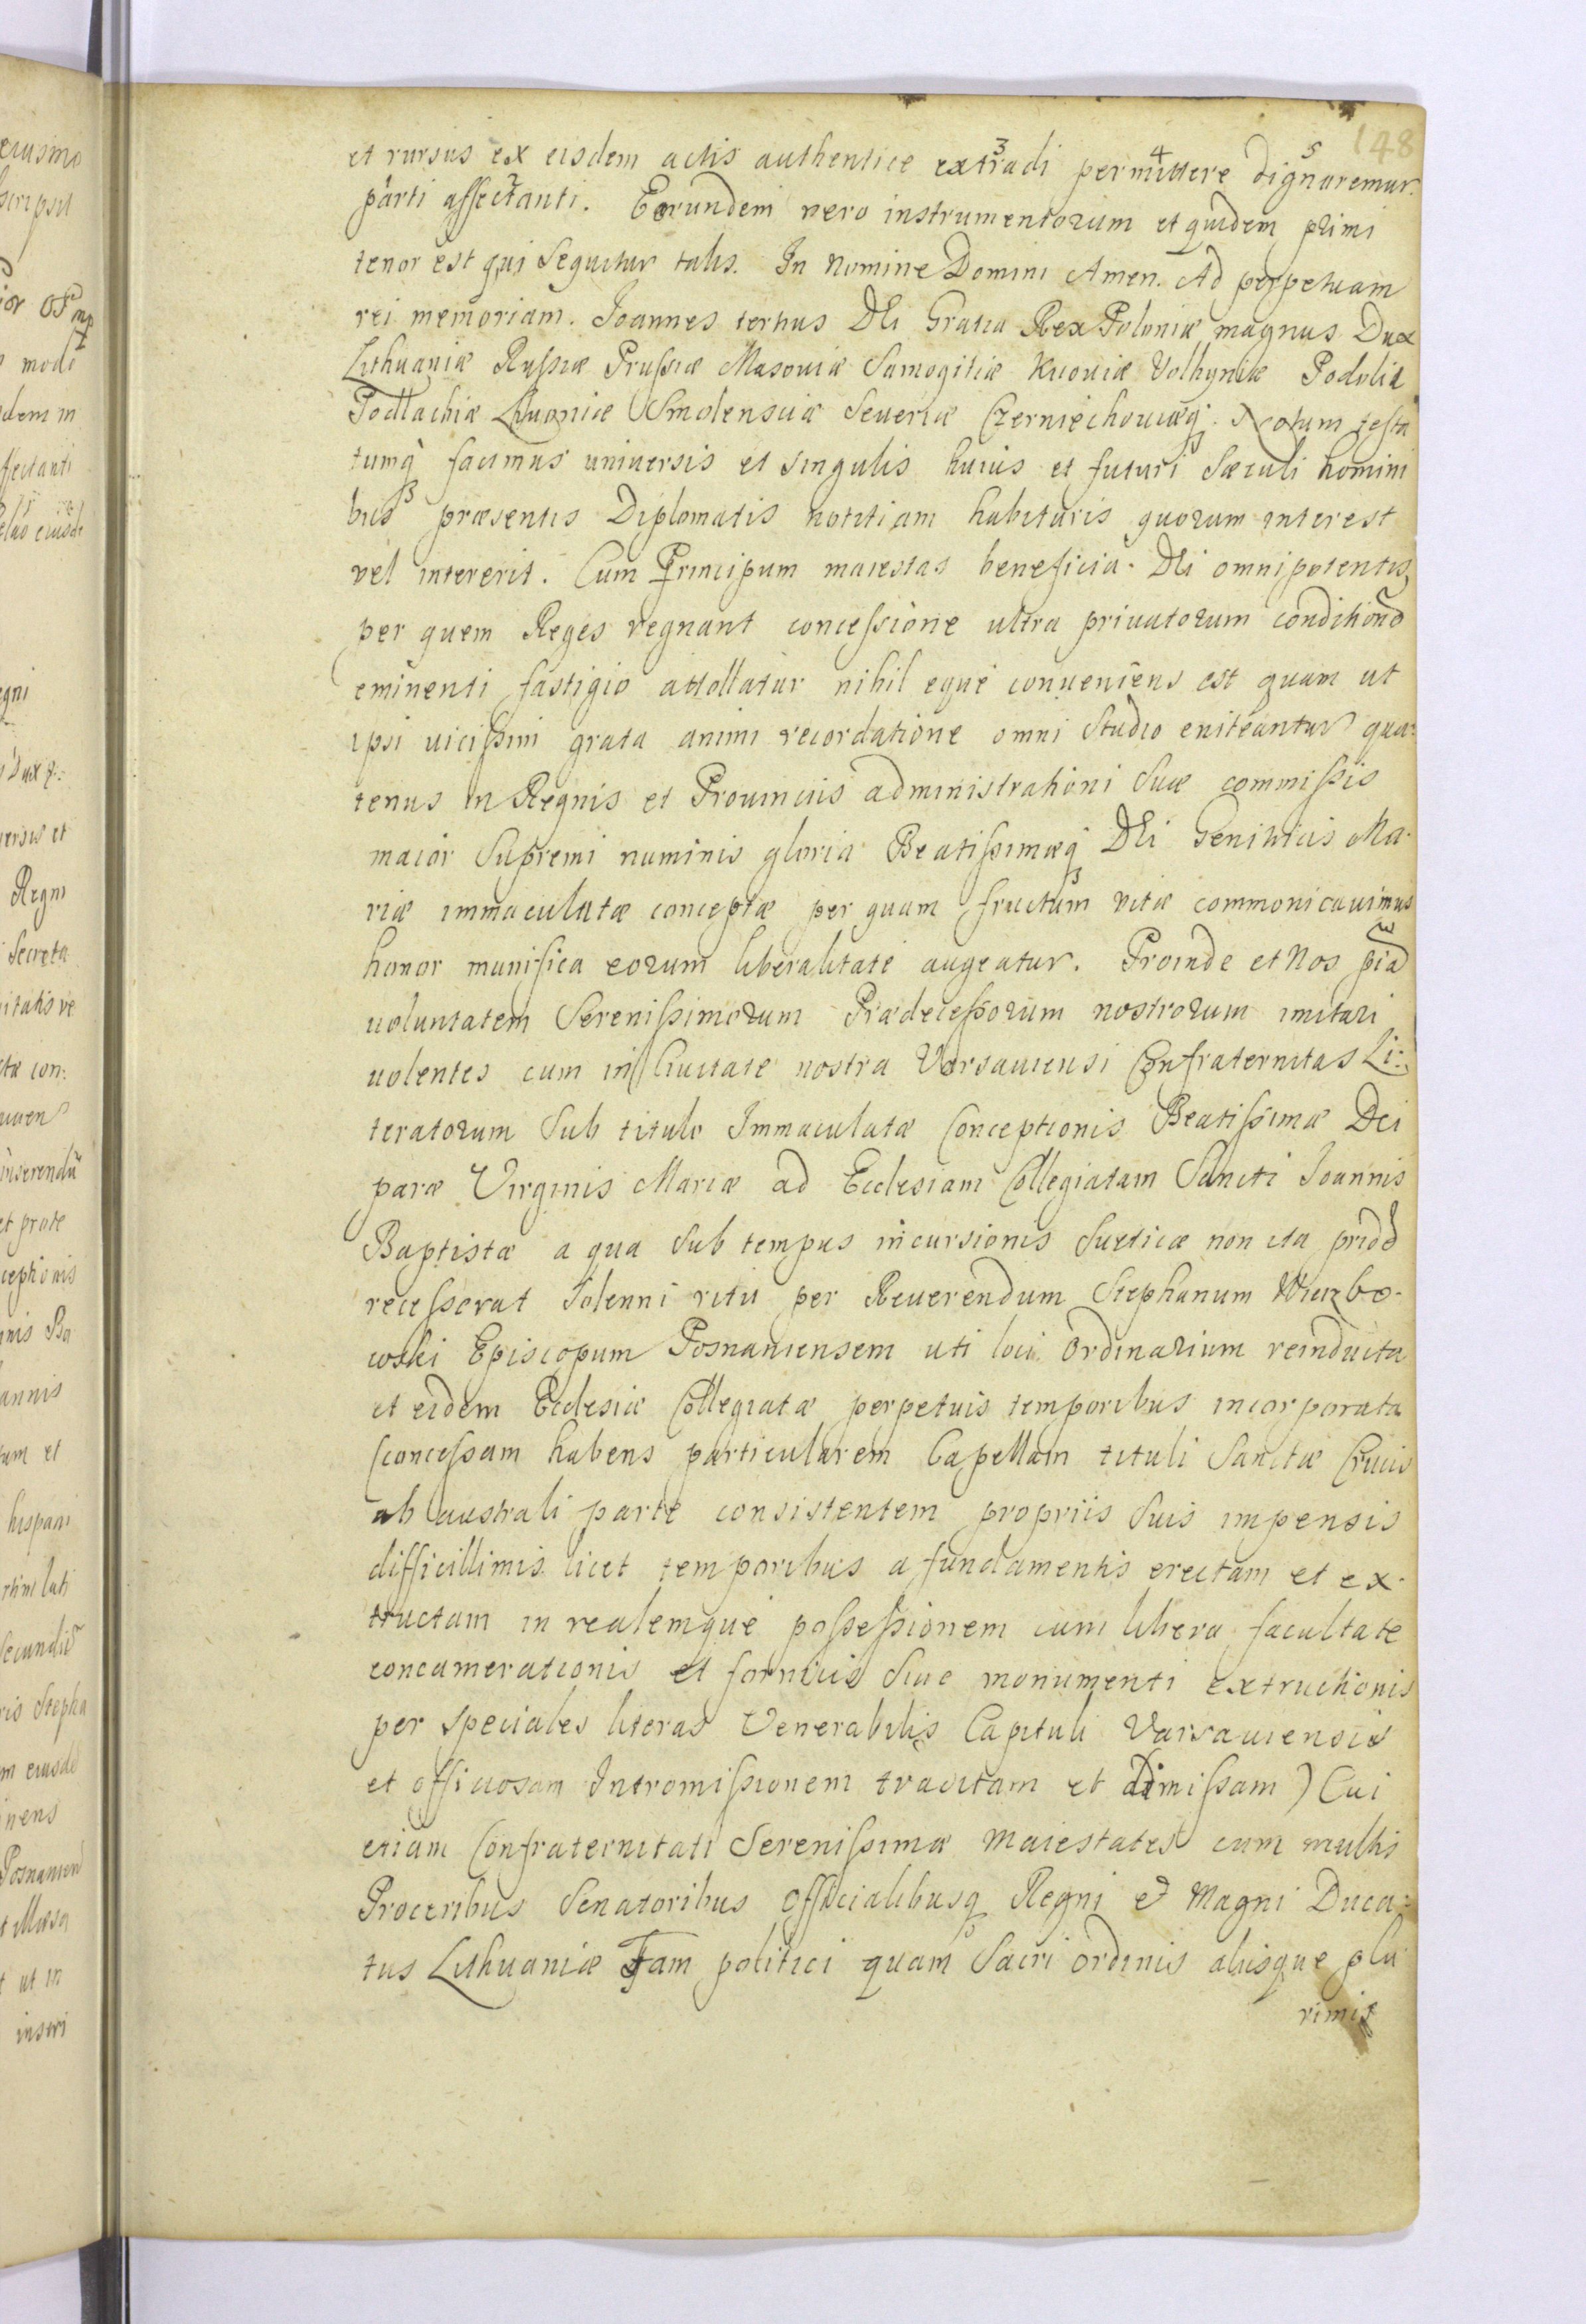 148
et rursus ex eisdem actis authentice extradi permittere dignaremur.
parti affectanti. Eorundem vero instrumentorum et quidem primi
tenor est qui sequitur talis. In Nomine Domini Amen. Ad perpetuam
rei memoriam. Joannes tertius Dei Gratia Rex Poloniæ magnus Dux
Lithuaniæ Russiæ Prussiæ Masoviæ Samogitiæ Kiioviæ Volhyniæ Podoliæ
Podlachiæ Livoniæ Smolensciæ Severiæ Czerniechoviæq3. Notum testa
tumq3 facimus universis et singulis huius et futuri sæculi homini
bus præsentis Diplomatis notitiam habituris quorum interest
vel intererit. Cum Principum maiestas beneficia Dei omnipotentis,
per quem Reges regnant concessione ultra privatorum conditionẽ
eminenti fastigio attollatur nihil eque conveniens est quam ut
ipsi vicissim grata animi recordatione omni studio eniteantur qua:
tenus in Regnis et Provinciis administrationi suæ commissis
maior supremi numinis gloria Beatissimæq3 Dei Genitricis Ma-
riæ immaculatæ conceptæ per quam fructum vitæ commonicavimus
honor munifica eorum liberalitate augeatur. Proinde et Nos piã
voluntatem Serenissimorum Prædecessorum nostrorum imitari
volentes cum in Civitate nostra Varsaviensi Confraternitas Li-
teratorum sub titulo Immaculatæ Conceptionis Beatissimæ Dei
paræ Virginis Mariæ ad Ecclesiam Collegiatam Sancti Joannis
Baptistæ a qua sub tempus incursionis Sueticæ non ita pridẽ
recesserat solenni ritu per Reverendum Stephanum Wierzbo-
wski Episcopum Posnaniensem uti loci ordinarium reinducta
et eidem Ecclesiæ Collegiatæ perpetuis temporibus incorporata
(concessam habens particularem Capellam tituli Sanctæ Crucis
ab australi parte consistentem propriis suis impensis
difficillimis licet temporibus a fundamentis erectam et ex-
tructam in realemque possessionem cum libera facultate
concamerationis et fornicis sive monumenti extructionis
per speciales literas Venerabilis Capituli Varsaviensis
et officiosam Intromissionem traditam et dimissam) Cui
etiam Confraternitati Serenissimæ Maiestates cum multis
Proceribus Senatoribus officialibusq3 Regni et Magni Duca-
tus Lithuaniæ Tam politici quam Sacri ordinis aliisque plu
rimis